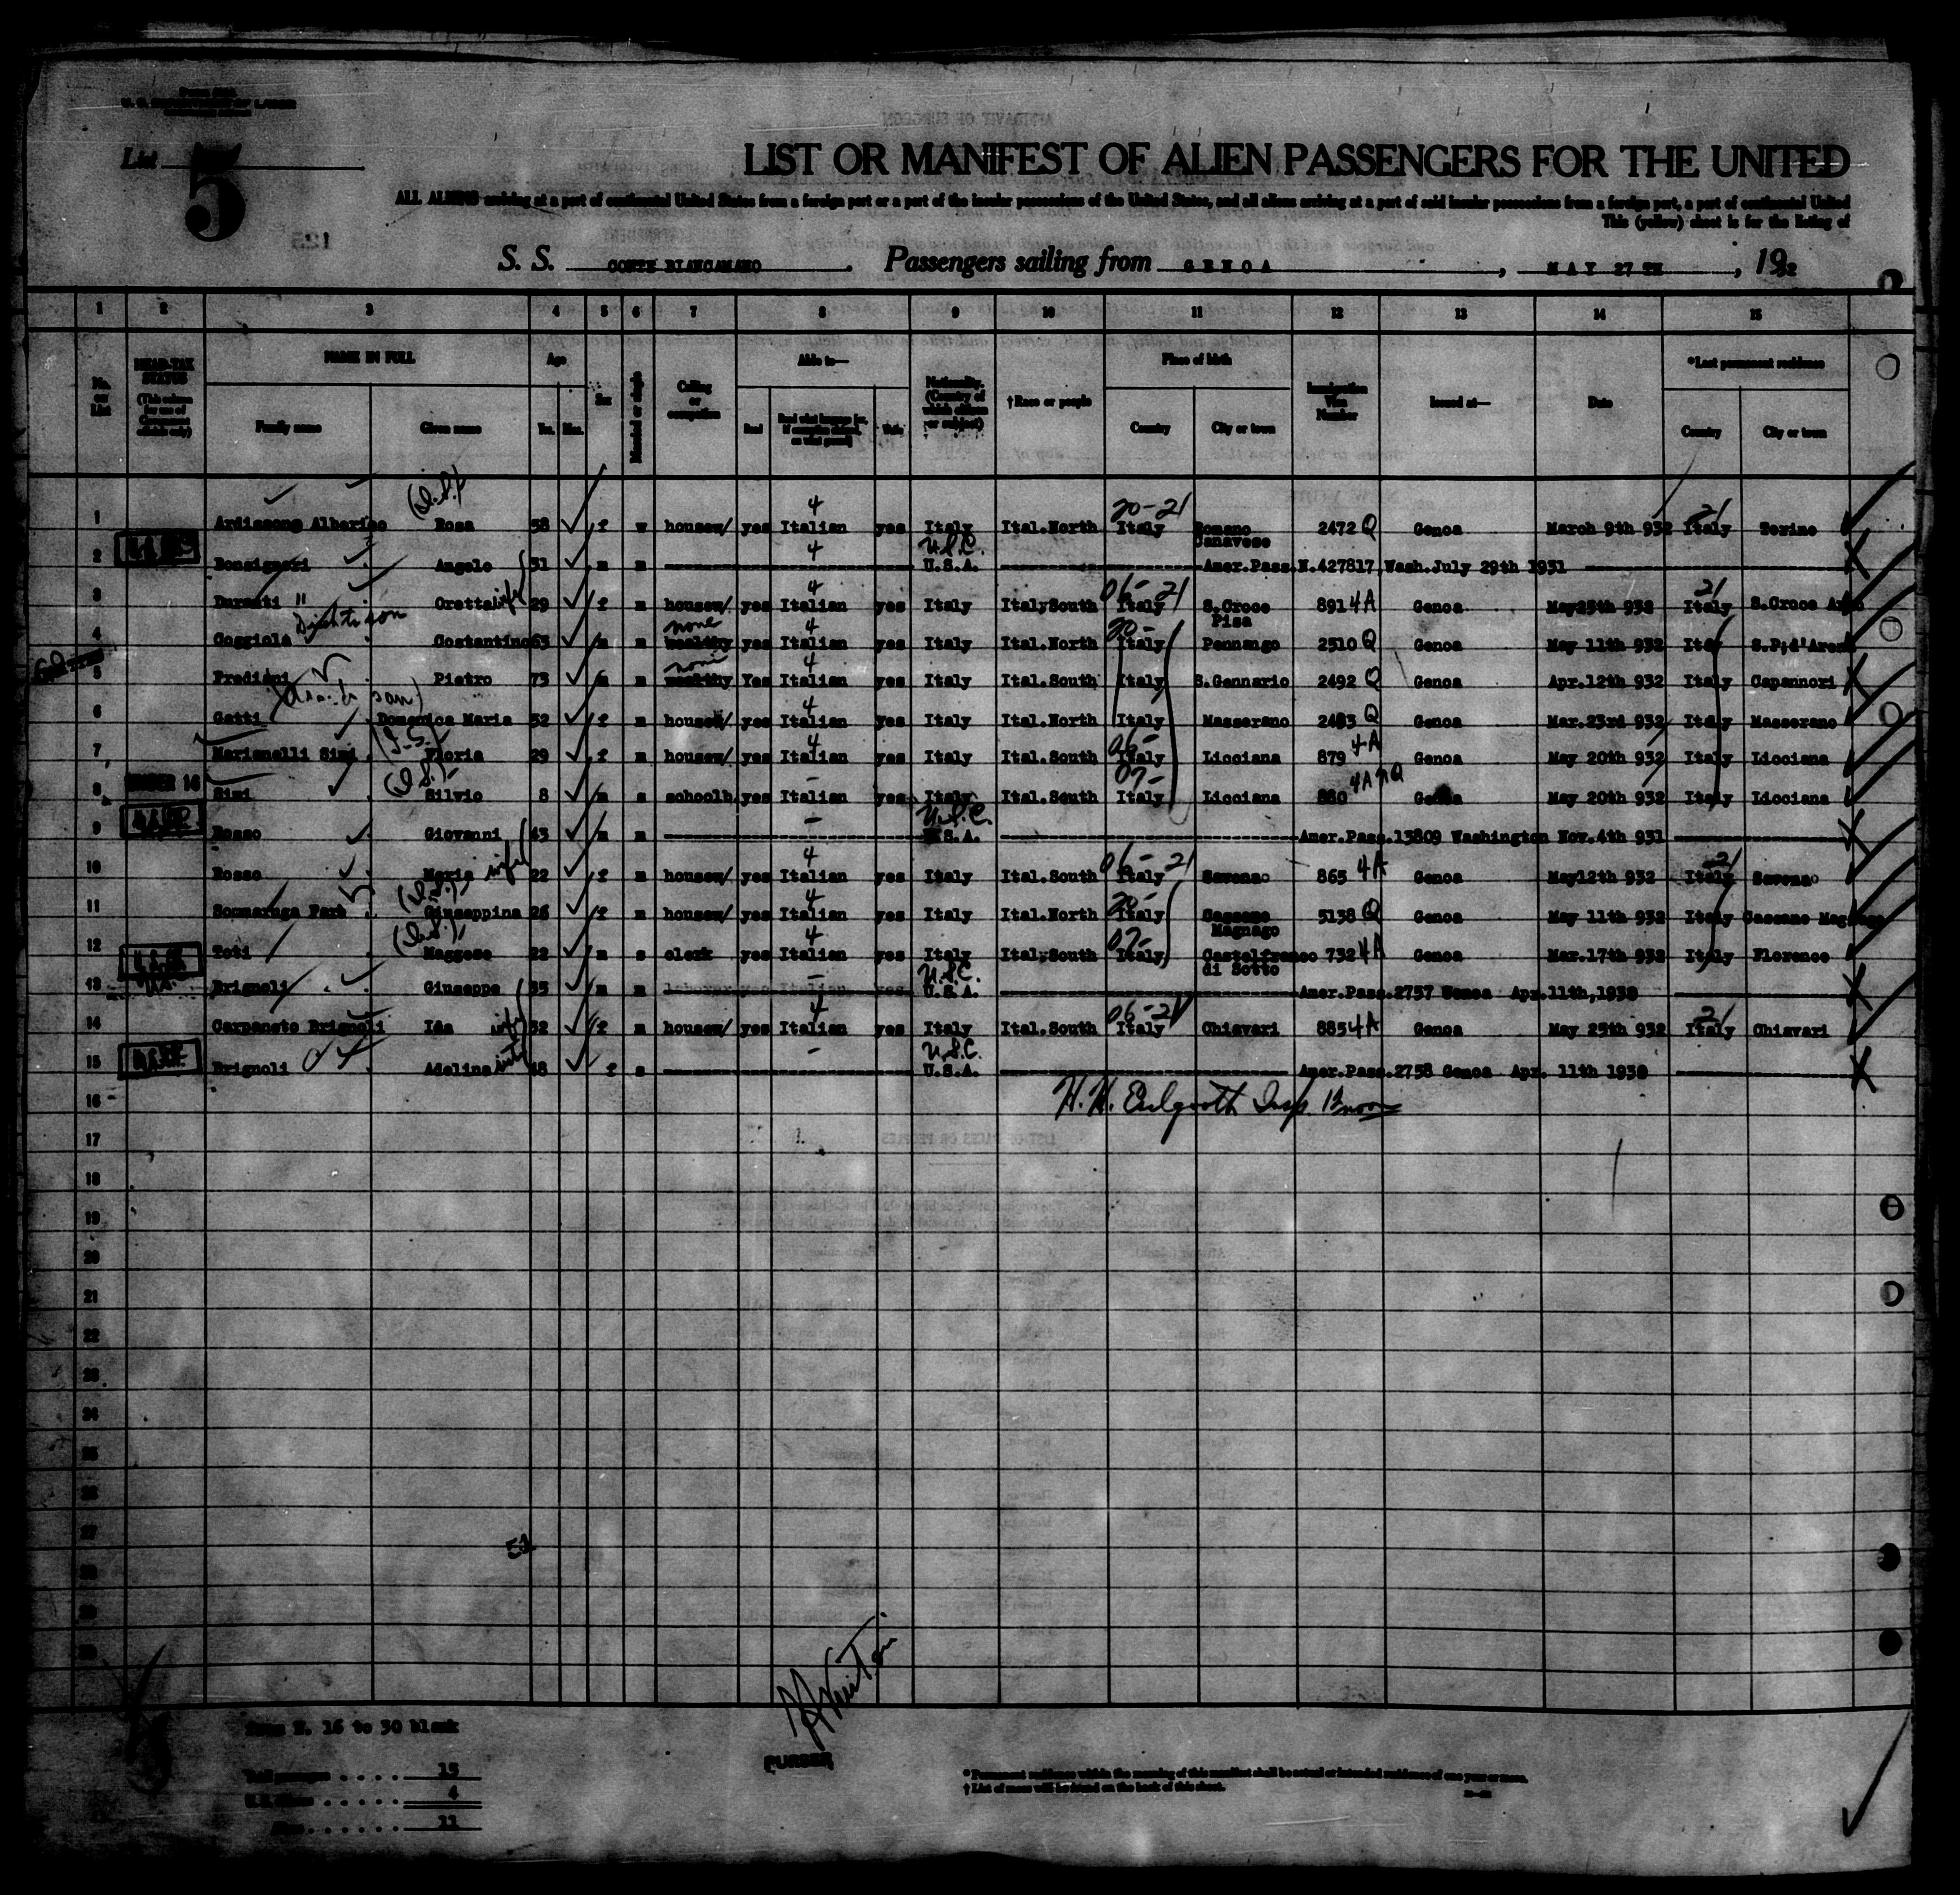 U. S. DEPARTMENT OF LABOR
List 5
LIST OR MANIFEST OF ALIEN PASSENGERS FOR THE UNITED
ALL ALIENS arriving at a port of continental United States from a foreign port or a port of the insular possessions of the United States, and all aliens arriving at a port of said insular possessions from a foreign port, a port of continental United
This (yellow) sheet is for the listing of
S. S. CONTE BIANCAMANO . Passengers sailing from GENOA , MAY 27 TH , 1932
1 2 3 4 5 6 7 8 9 10 11 12 13 14 15
No. on List
HEAD-TAX STATUS (This column for use of Government officials only)
NAME IN FULL Family name Given name
Age Yrs. Mos.
Sex
Married or single
Calling or occupation
Able to— Read Read what language [or, if exemption claimed, on what ground] Write
Nationality. (Country of which citizen or subject)
†Race or people
Place of birth Country City or town
Immigration Visa Number
Issued at—
Date
*Last permanent residence Country City or town
1 Ardissono Alberino Rosa 58 f w housew/ yes Italian 4 yes Italy Ital.North 20-21 Italy Romano Canavese 2472 Q Genoa March 9th 932 21 Italy Torino
2 Bonsignori Angelo 31 m m 4 U.S.C. U.S.A. Amer.Pass.N.427817,Wash.July 29th 1931
3 Duranti " Oretta 29 f m housew/ yes Italian 4 yes Italy ItalySouth 06-21 Italy S.Croce Pisa 891 4A Genoa May25th 932 21 Italy S.Croce
4 Coggiola Costantino 63 m m none wealthy yes Italian 4 yes Italy Ital.North 20- Italy Pennango 2510 Q Genoa May 11th 932 Italy S.P;d'Arena
5 Prediani Pietro 73 m m none wealthy Yes Italian 4 yes Italy Ital.South Italy S.Gennario 2492 Q Genoa Apr.12th 932 Italy Capannori
6 Gatti Domenica Maria 52 f m housew/ yes Italian 4 yes Italy Ital.North Italy Masserano 2483 Q Genoa Mar.23rd 932 Italy Masserano
7 Marianelli Simi Floria 29 f m housew/ yes Italian 4 yes Italy Ital.South 06- Italy Licciana 879 4-A Genoa May 20th 932 Italy Licciana
8 Simi Silvio 8 m s schoolb. yes Italian - yes Italy Ital.South 07- Italy Licciana 880 Genoa May 20th 932 Italy Licciana
9 Rosso Giovanni 43 m m - U.S.C. U.S.A. Amer.Pass.13809 Washington Nov.4th 931
10 Rosso Maria 22 f m housew/ yes Italian 4 yes Italy Ital.South 06-21 Italy 865 4A Genoa May12th 932 21 Italy
11 Sommaruga Giuseppina 26 f m housew/ yes Italian 4 yes Italy Ital.North 20- Italy Cassano Magnago 5138 Q Genoa May 11th 932 Italy Cassano Magnago
12 Toti Maggese 22 m s clerk yes Italian 4 yes Italy ItalySouth 07- Italy Castelfranco di Sotto 732 4A Genoa Mar.17th 932 Italy Florence
13 Brignoli Giuseppe 35 m m laborer yes Italian - yes U.S.C. U.S.A. Amer.Pass.2757 Genoa Apr.11th,1930
14 Carpaneto Brignoli Ida 32 f m housew/ yes Italian 4 yes Italy Ital.South 06-21 Italy Chiavari 885 4A Genoa May 25th 932 21 Italy Chiavari
15 Brignoli Adelina f s - U.S.C. U.S.A. Amer.Pass.2758 Genoa Apr. 11th 1930
16
17
18
19
20
21
22
23
24
25
26
27
28
29
30
from N. 16 to 30 blank
15
4
11
PURSER
*Permanent residence within the meaning of this manifest shall be actual or intended residence of one year or more.
†List of races will be found on the back of this sheet.